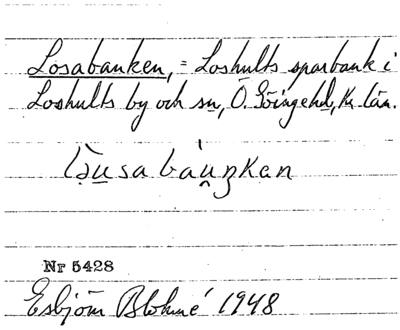 Losabanken, = Loshults sparbank i
Loshults by och sn, Ö. Göingehd, Kr. län.
Nr 5428
Esbjörn Blohmé 1948